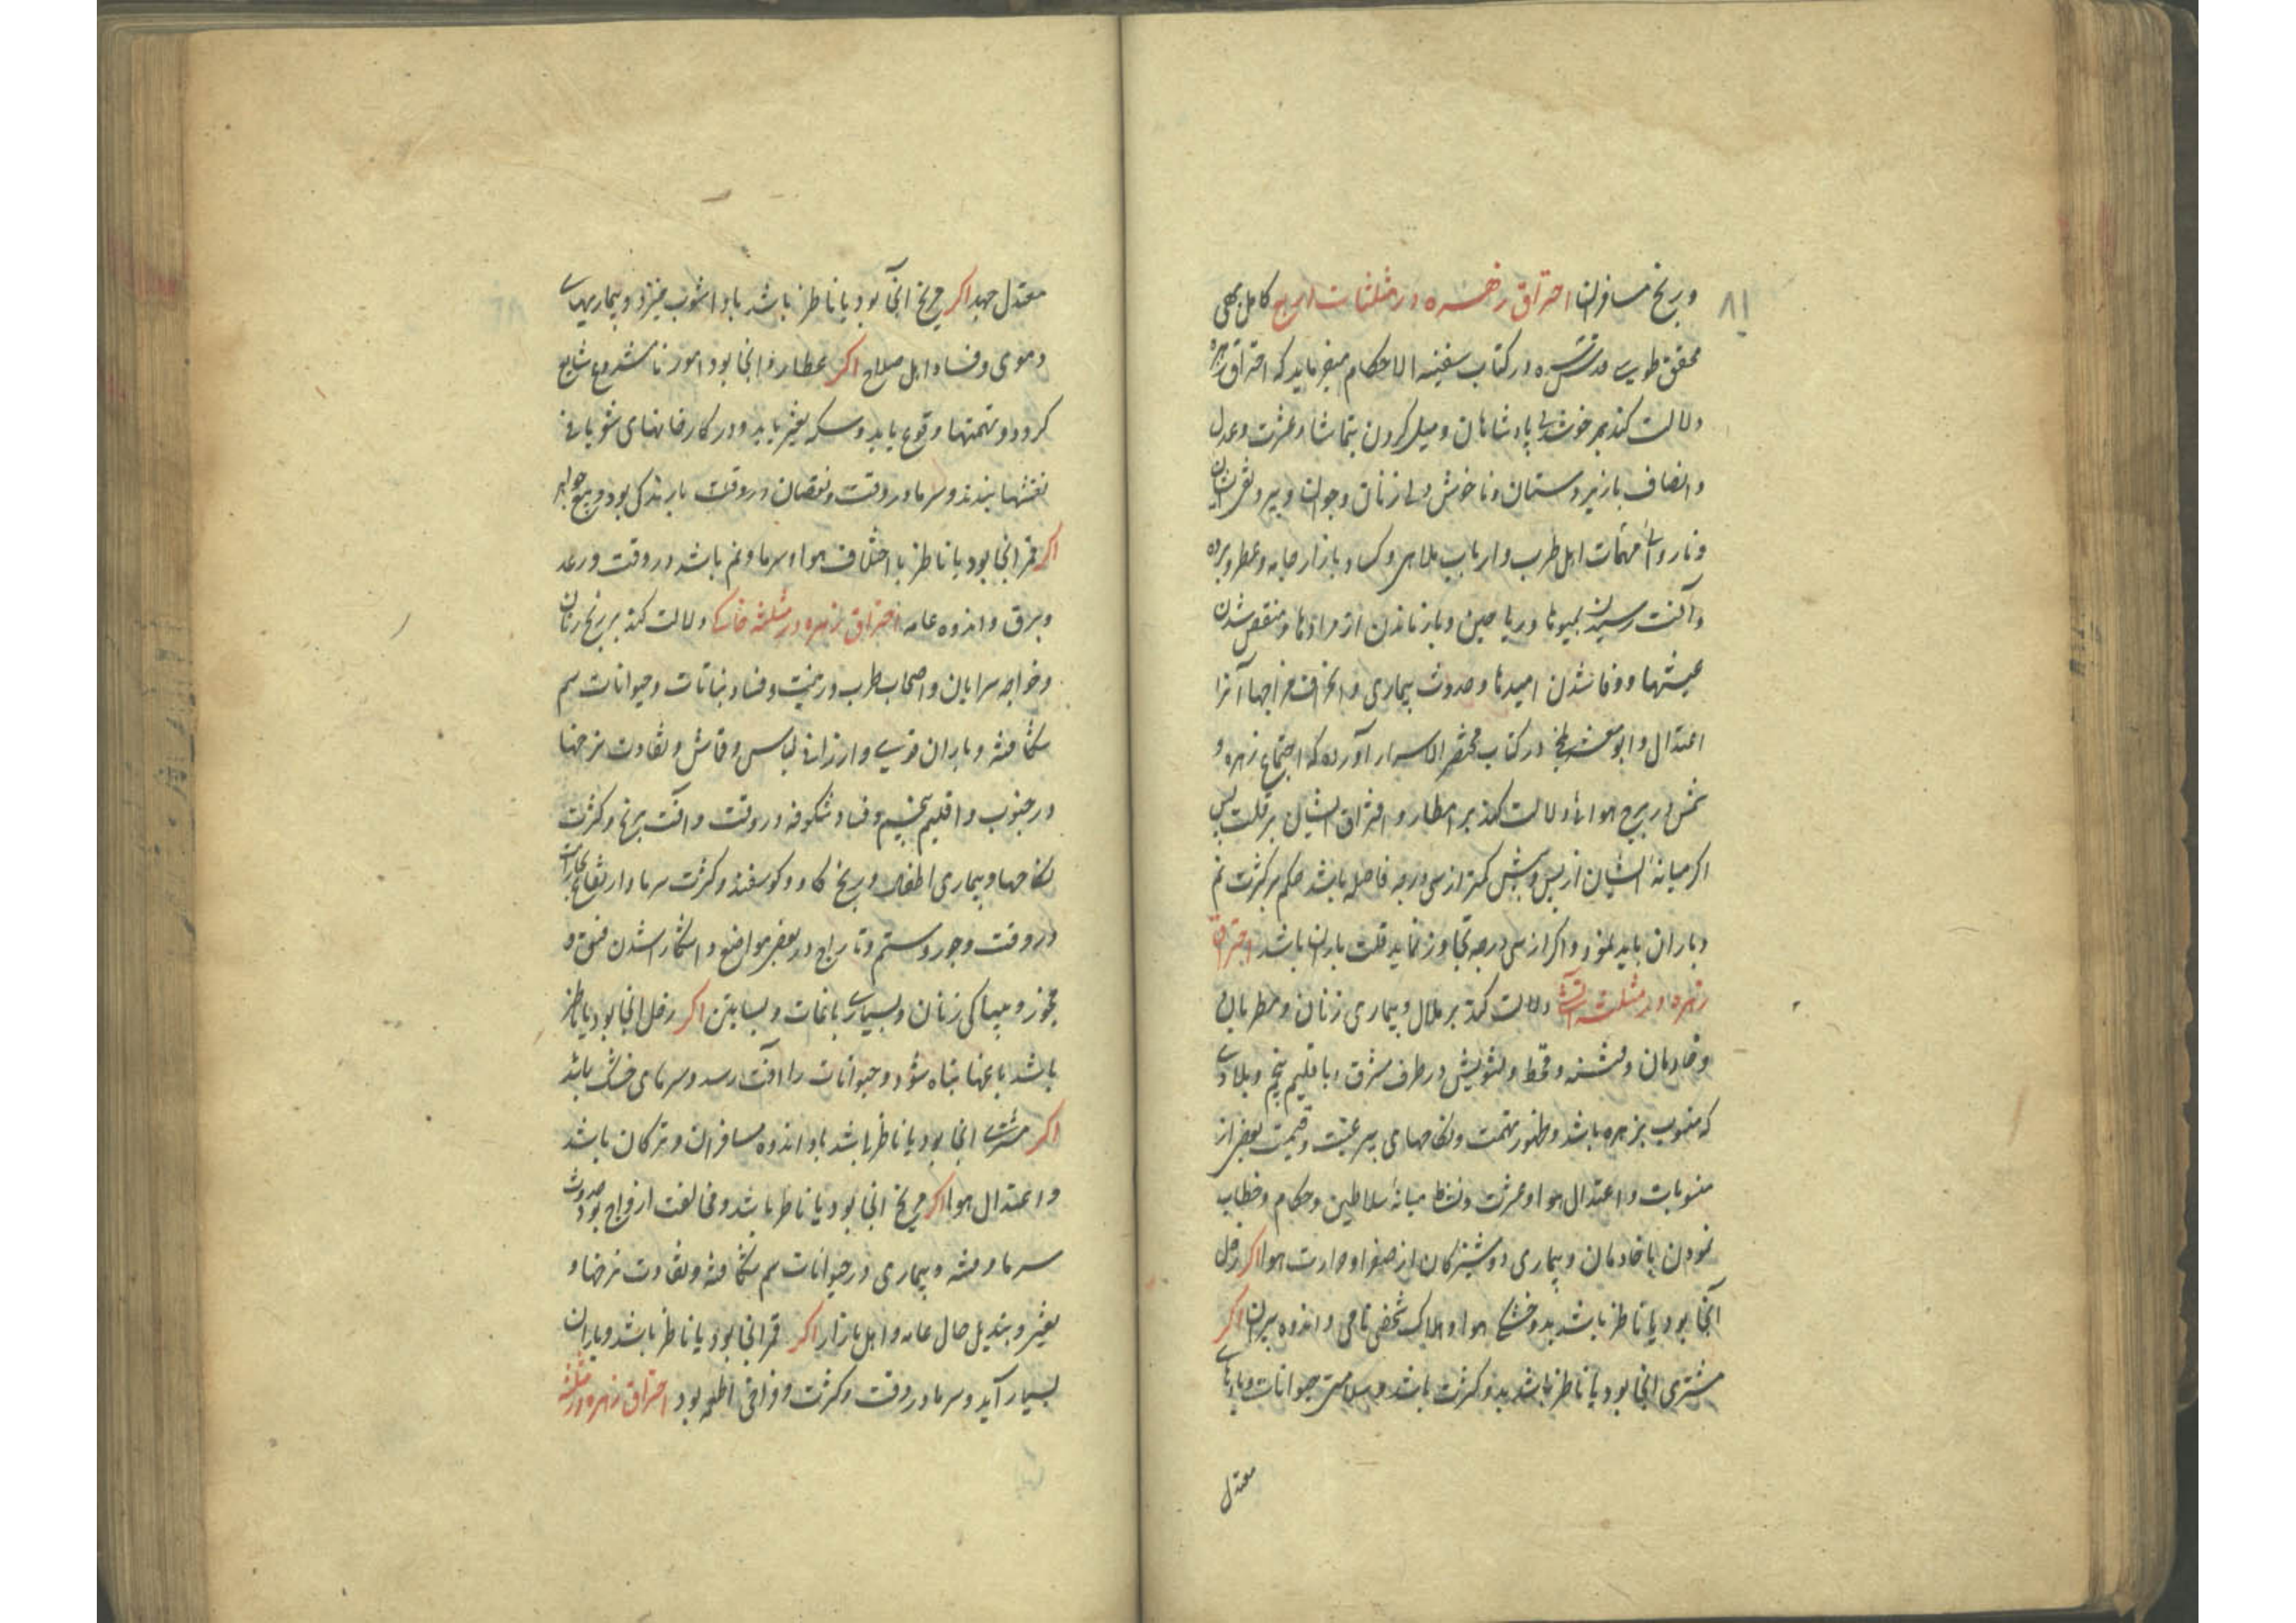 ۸۱
و رنج مسافران احتراق زهره در مثلثات بروج کامل بهی
محقق طوسی قدس سره در کتاب سفینه الاحکام میفرماید که احتراق زهره
دلالت کند بر خوشدلی پادشاهان و میل کردن بتماشا و عشرت و عدل
و انصاف بازیردستان و ناخوش دلی زنان و جوانان و پیر و
و ناروائی مهمات اهل طرب و ارباب ملاهی و کساد بازار جامه و عطر و برده
و آفت رسیدن بمیوها و ریاحین و بازماندن از مرادها و منقص شدن
عیشها و وفا شدن امیدها و حدوث بیماری و انحراف مزاجها آنرا
اعتدال و ابومعشر بلخی در کتاب مختصر الاسرار آورده که اجتماع زهره و
شمس در برج هوائی دلالت کند بر امطار و افتراق ایشان بر قلت پس
اگر میانه ایشان از پس و پیش کمتر از سی درجه فاصله باشد حکم بر کثرت نم
و باران باید نمود و اگر از سی درجه تجاوز نماید قلت باران باشد احتراق
زهره در مثلثه آتشی دلالت کند بر ملال و بیماری زنان و مطربان
و خادمان و فتنه و قحط و تشویش در طرف مشرق و باقلیم پنجم و بلادی
که منسوب بزهره باشد و ظهور تهمت و نکاحهای بیرغبت و قیمت بعضی از
منسوبات و اعتدال هوا و عشرت و نشاط میانه سلاطین و حکام و خطاب
نمودن با خادمان و بیماری دوشیزگان از صفرا و حرارت هوا اگر زحل
آنجا بود یا ناظر باشد بد و خشکی هوا و هلاک شخصی نامی و اندوه پیران اگر
مشتری انجا بود یا ناظر باشد بدو کثرت باشد و سلامتی حیوانات و بادهای
معتدل
معتدل جهد اگر مریخ انجا بود یا ناظر باشد باد اشوب خیزد و بیماریهای
دموی و فساد اهل صلاح اگر عطارد انجا بود امور نامشروع شایع
گردد و تهمتها وقوع یابد و سکه تغیر یابد و در کارخانهای شوبافی
نقشها بندند و سرما در وقت و نقصان در وقت بارندگی بود و بیع جواهر
اگر قمر انجا بود یا ناظر با اختلاف هوا و سرما و نم باشد در وقت و رعد
و برق و اندوه عامه احتراق زهره در مثلثه خاکی دلالت کند بر رنج زنان
و خواجه سرایان و اصحاب طرب و رعیت و فساد نباتات و حیوانات سم
شکافته و باران قوی و ارزانی لباس و قماش و تفاوت نرخها
در جنوب و اقلیم پنجم و فساد شکوفه در وقت و آفت برنج و کثرت
نکاحها و بیماری اطفال و رنج گاو و گوسفند و کثرت سرما و ارتفاع بخارات
در وقت و جور و ستم و تاراج در بعضی مواضع و اشکار شدن فسق و
فجور و بیباکی زنان و بسیاری باغات و بساتین اگر زحل انجا بود یا ناظر
باشد باغها تباه شود و حیوانات را آفت رسد و سرمای خشک باشد
اگر مشتری انجا بود یا ناظر باشد باو اندوه مسافران و ترکان باشد
و اعتدال هوا اگر مریخ انجا بود یا ناظر باشد و مخالفت ازواج بود و حدوث
سرما و فتنه و بیماری در حیوانات سم شکافته و تفاوت نرخها و
تغیر و تبدیل حال عامه و اهل بازار اگر قمر انجا بود یا ناظر باشد و باران
بسیار آید و سرما در وقت و کثرت و فراخی اطعمه بود احتراق زهره در مثلثه